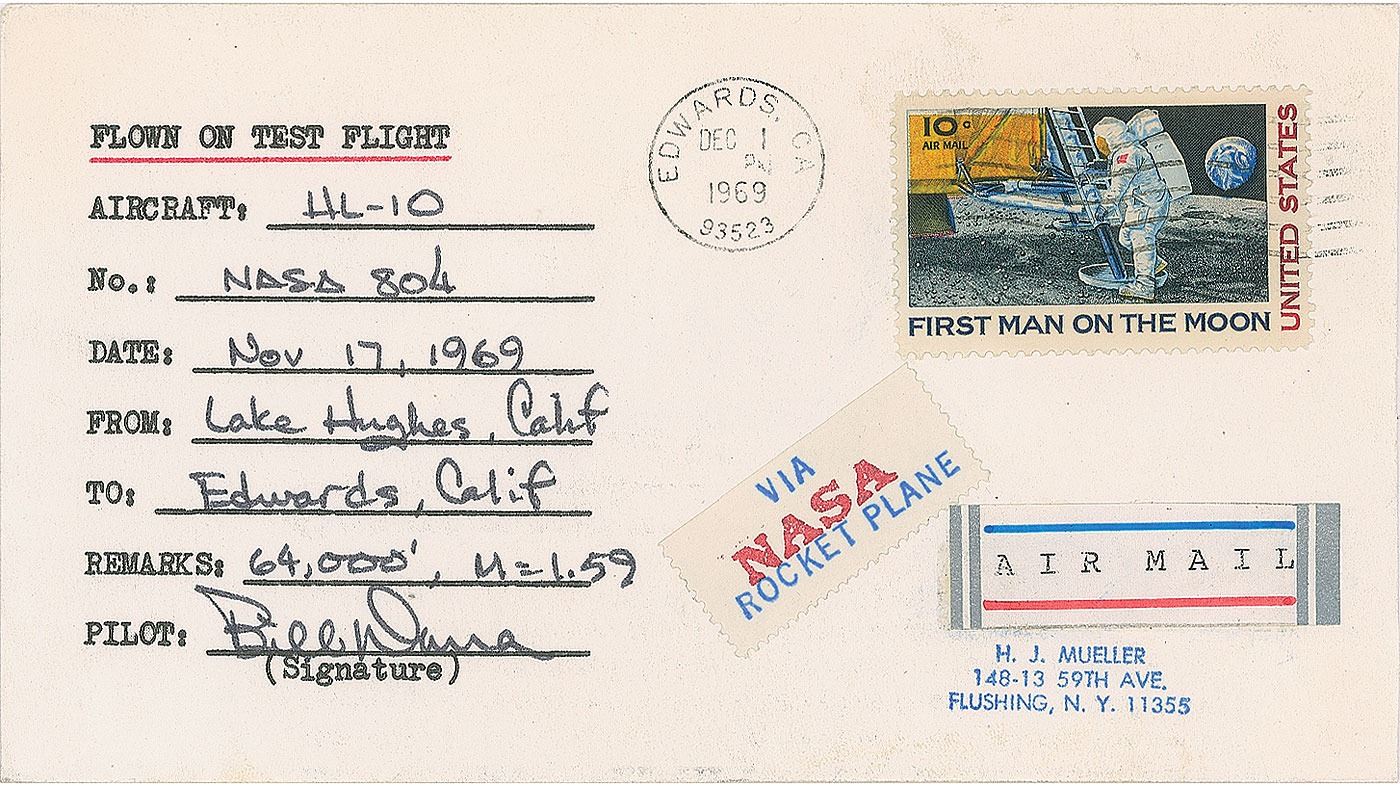 FLOWN ON TEST FLIGHT
AIRCRAFT: HL-10
No.: NASA 804
DATE: Nov 17, 1969
FROM: Lake Hughes, Calif
TO: Edwards, Calif
REMARKS: 64,000', M=1.59
PILOT: Bill Dana
(Signature)
EDWARDS, CA
DEC 1
PM
1969
93523
10c
AIR MAIL
UNITED STATES
FIRST MAN ON THE MOON
VIA
NASA
ROCKET PLANE
AIR MAIL
H. J. MUELLER
148-13 59TH AVE.
FLUSHING, N. Y. 11355